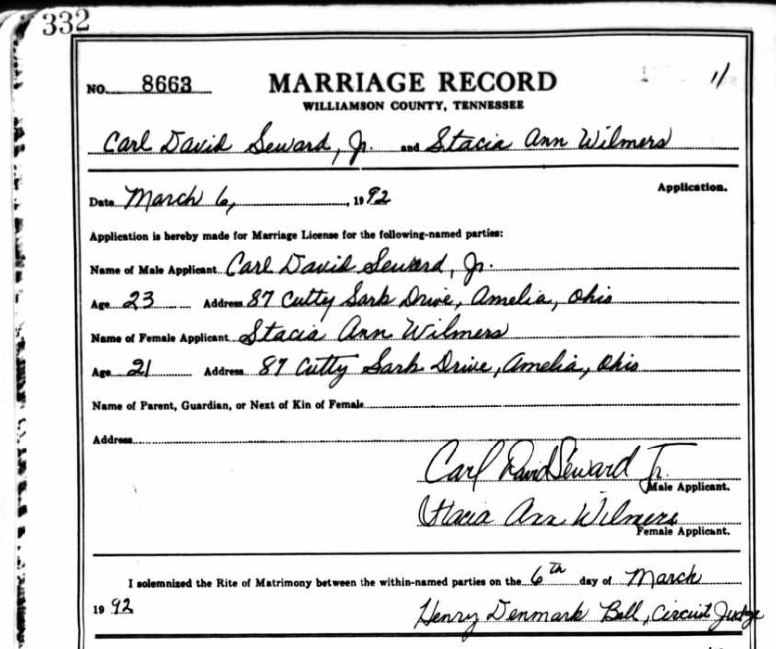 332
NO. 8663 MARRIAGE RECORD 11
WILLIAMSON COUNTY, TENNESSEE
Carl David Seward, Jr. and Stacia Ann Wilmers
Application.
Date March 6, , 1992
Application is hereby made for Marriage License for the following-named parties:
Name of Male Applicant Carl David Seward, Jr.
Age 23 Address 87 Cutty Sark Drive, Amelia, Ohio
Name of Female Applicant Stacia Ann Wilmers
Age 21 Address 87 Cutty Sark Drive, Amelia, Ohio
Name of Parent, Guardian, or Next of Kin of Female
Address
Carl David Seward Jr.
Male Applicant.
Stacia Ann Wilmers
Female Applicant.
I solemnized the Rite of Matrimony between the within-named parties on the 6th day of March
1992 Henry Denmark Bell, Circuit Judge